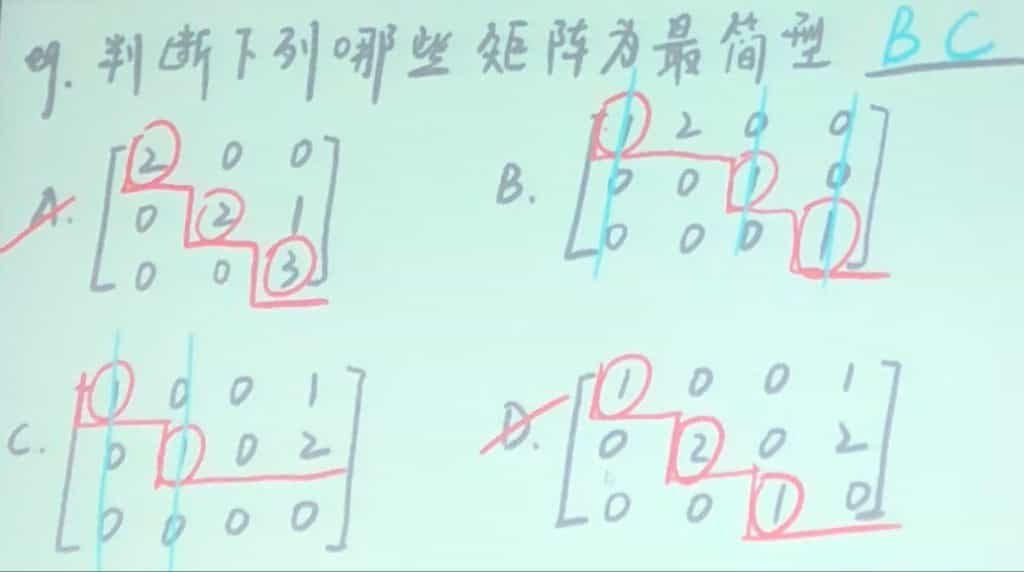 eg. 判断下列哪些矩阵为最简型 BC
A. [2 0 0
0 2 1
0 0 3]
B. [1 2 0 0
0 0 1 0
0 0 0 1]
C. [1 0 0 1
0 1 0 2
0 0 0 0]
D. [1 0 0 1
0 2 0 2
0 0 1 0]